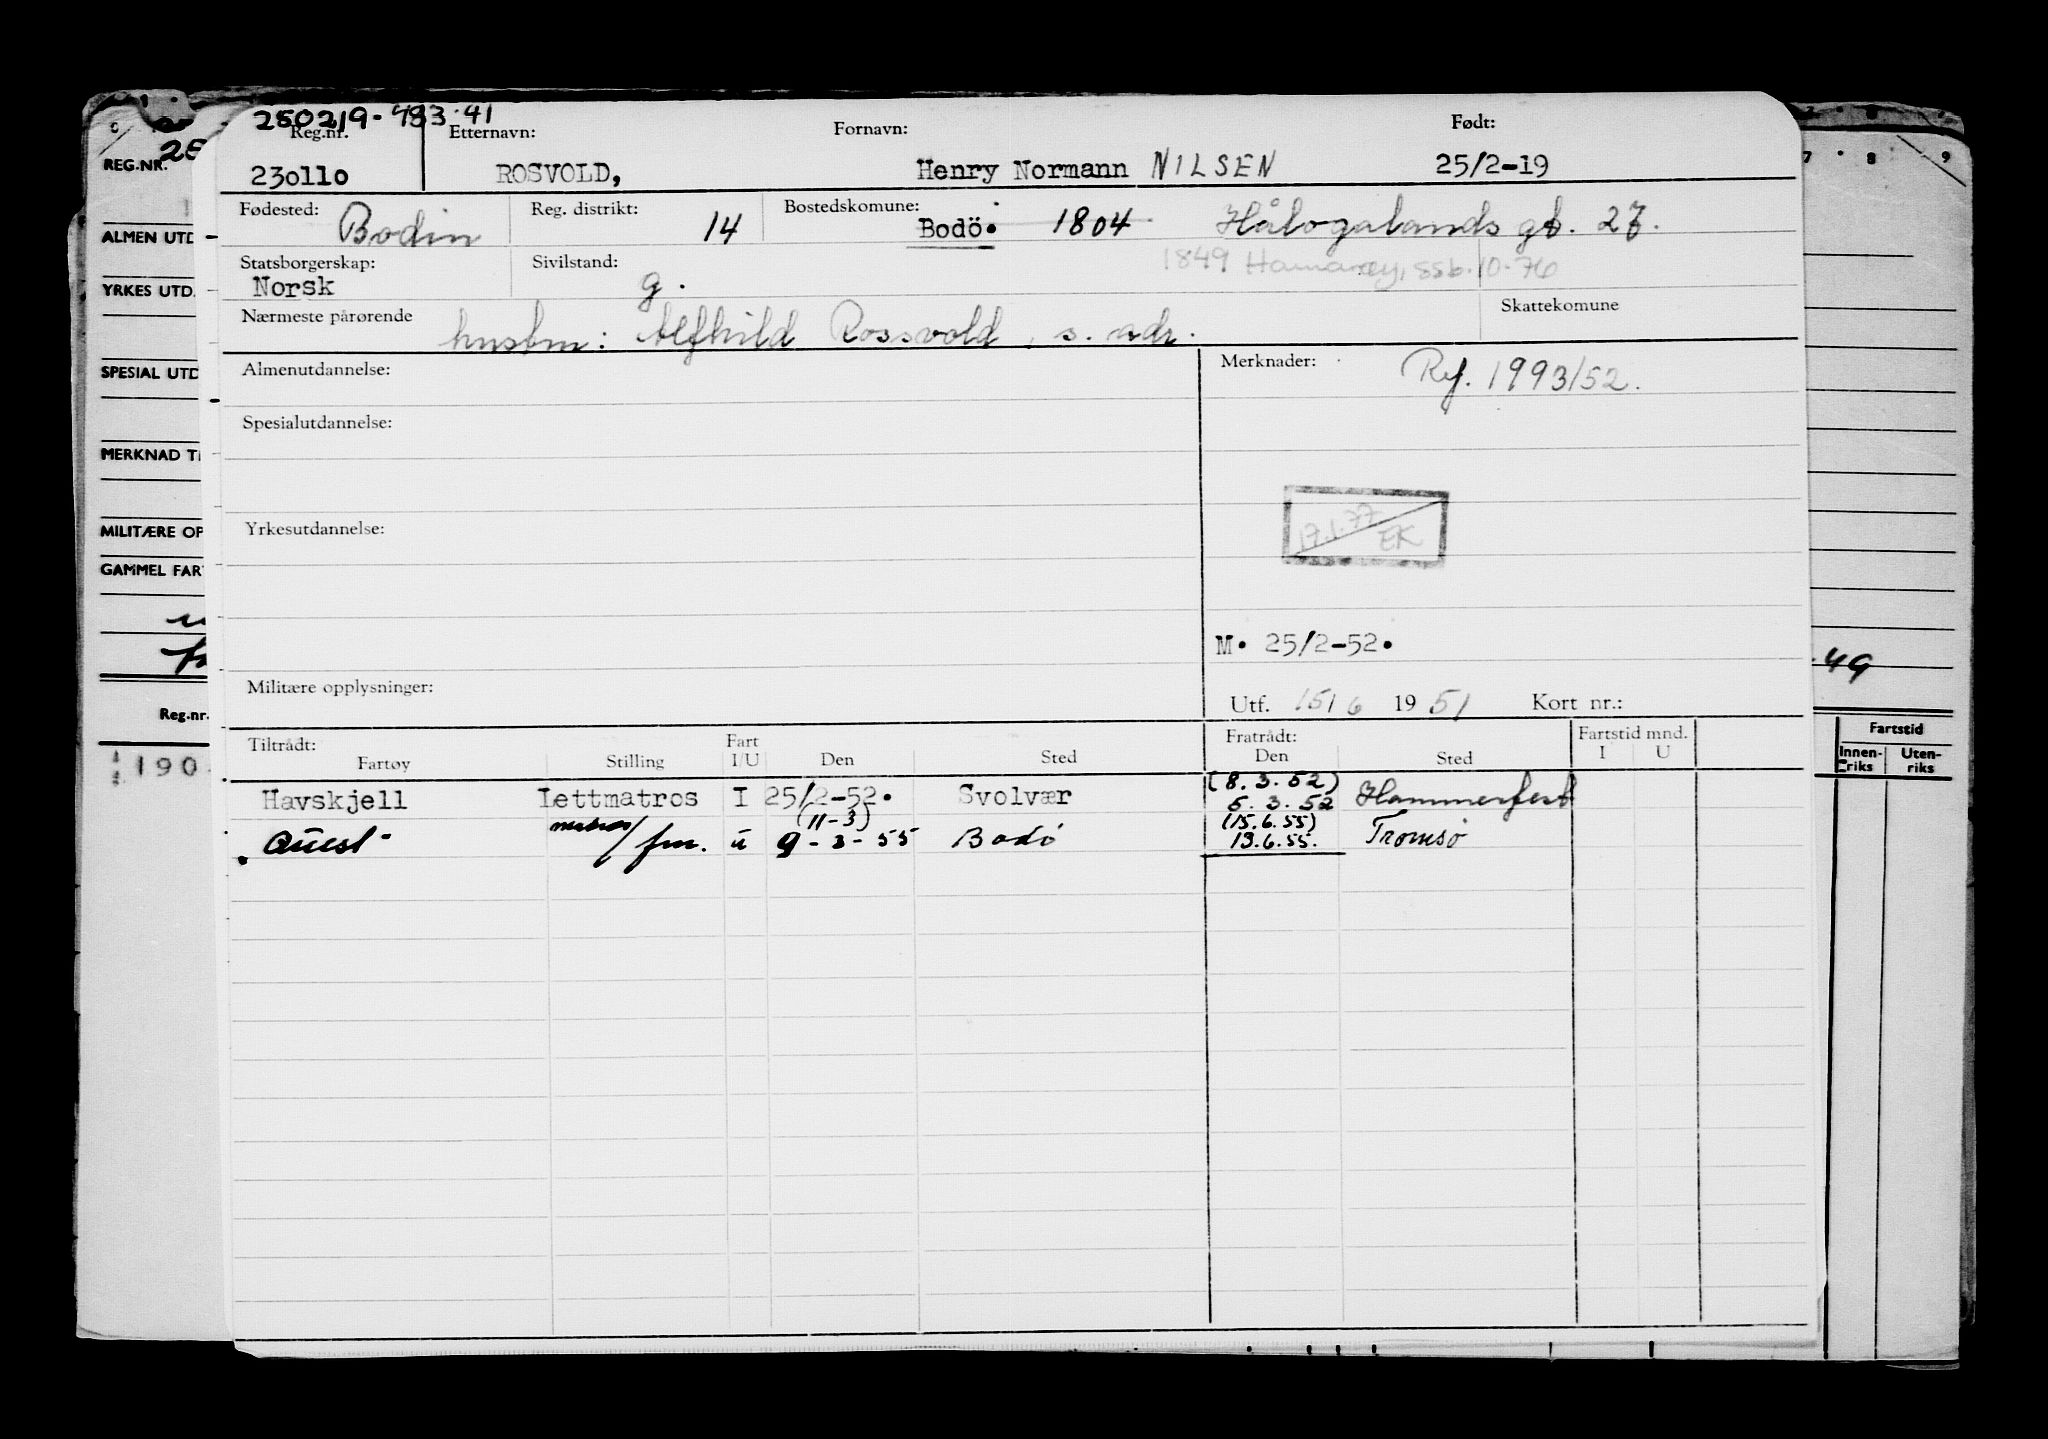 250219-483.41
Reg.nr. Etternavn: Fornavn: Født:
23ollo ROSVOLD, Henry Normann NILSEN 25/2-19
Fødested: Bodin Reg. distrikt: 14 Bostedskomune: Bodö. 1804 Hålogalands gt. 27.
1849 Hamarøy, ssb. 10.76
Statsborgerskap: Norsk Sivilstand: g. Skattekomune
Nærmeste pårørende hustru: Alfhild Rossvold, s. adr.
Almenutdannelse: Merknader: Ref. 1993/52.
Spesialutdannelse:
17.1.77 EK
Yrkesutdannelse:
M. 25/2-52.
Militære opplysninger: Utf. 15/6 1951 Kort nr.:
Tiltrådt: Fratrådt: Fartstid mnd.
Fartøy Stilling Fart I/U Den Sted Den Sted I U
Havskjell Lettmatros I 25/2-52. Svolvær (8.3.52) 5.3.52 Hammerfest
Quest matros/fm. u (11-3) 9-3-55 Bodø (15.6.55) 13.6.55. Tromsø
REG.NR. 25
ALMEN UTD
YRKES UTD.
SPESIAL UTD
MERKNAD TI
MILITÆRE OP
GAMMEL FAR
Reg.nr.
190
7 8 9
.49
Fartstid
Innen-riks Uten-riks